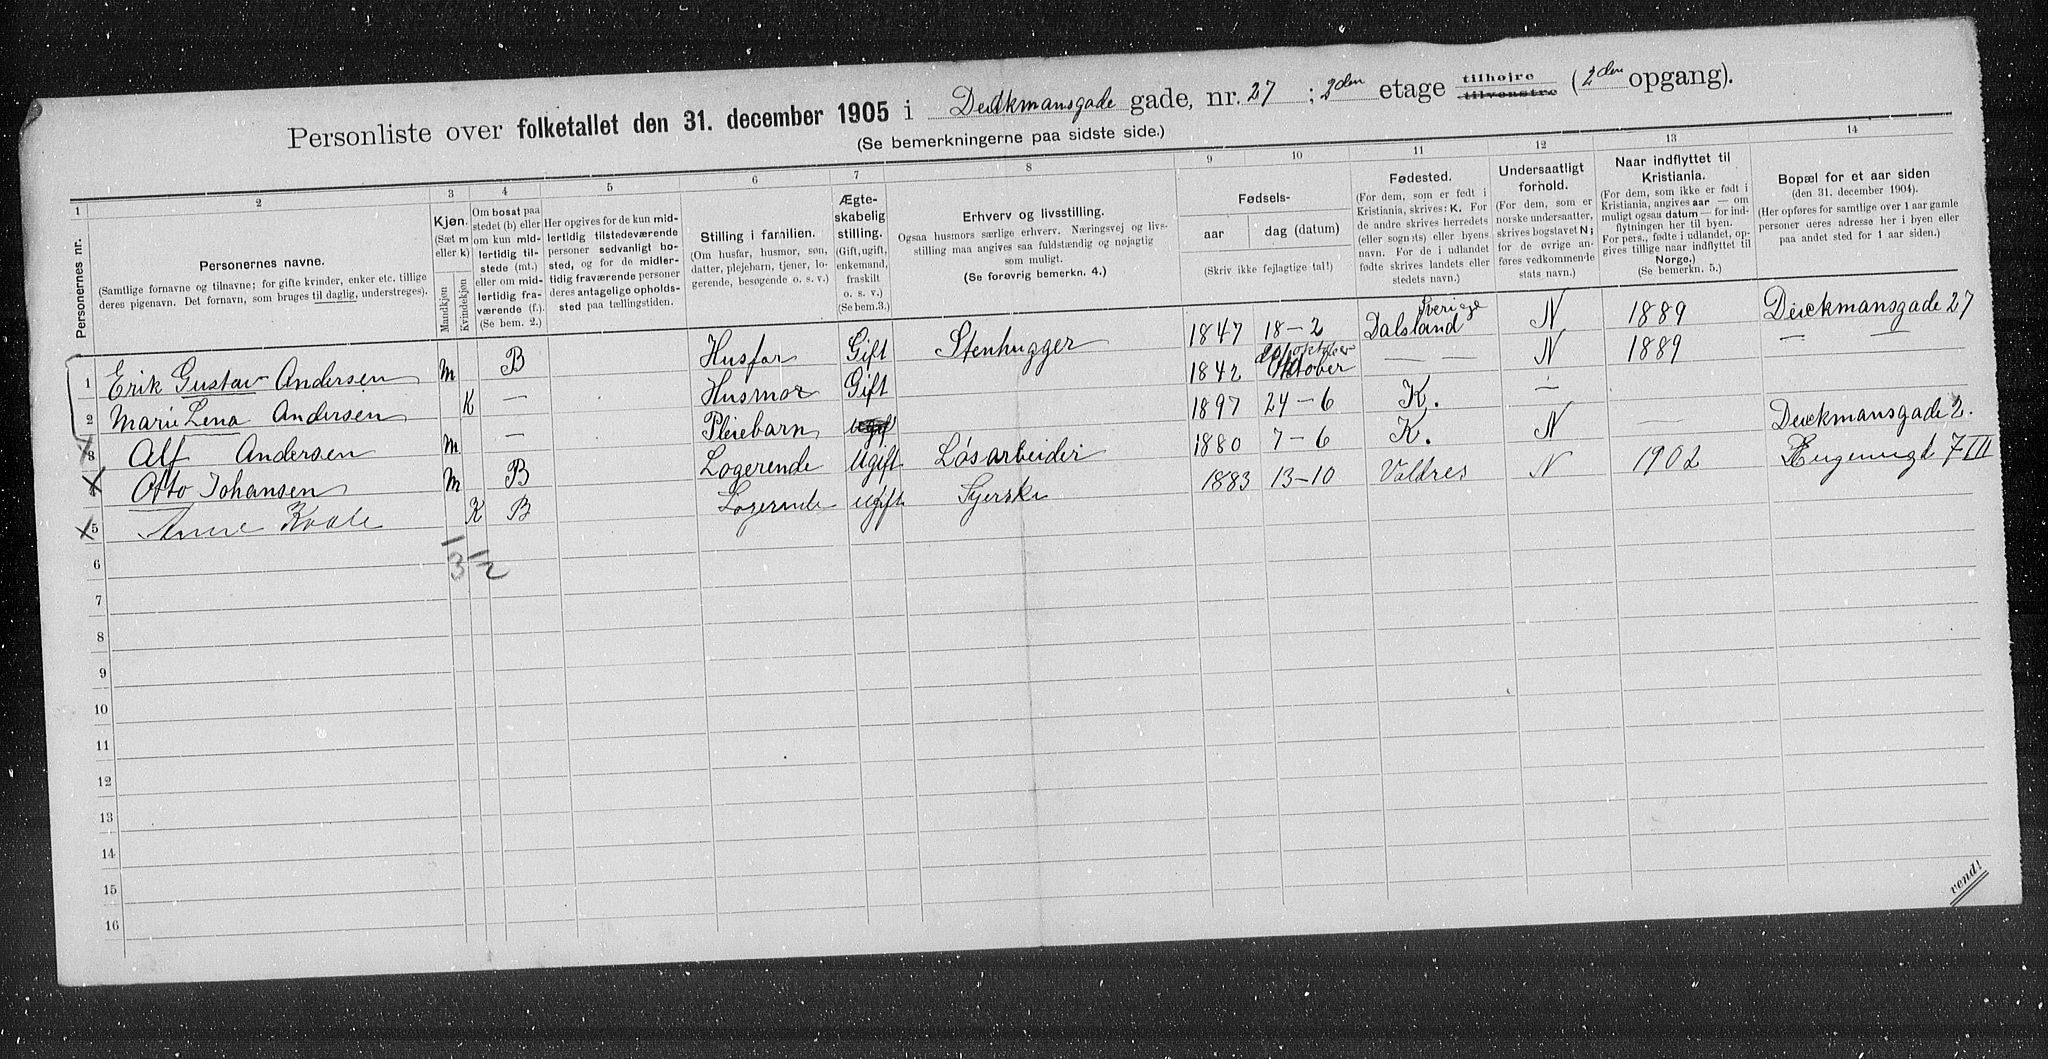 Personliste over folketallet den 31. december 1905 i Deichmansgade gade, nr. 27 ; 2den etage tilhøjre tilvenstre (2den opgang).
(Se bemerkningerne paa sidste side.)
1 2 3 4 5 6 7 8 9 10 11 12 13 14
Personernes nr.
Personernes navne.
(Samtlige fornavne og tilnavne; for gifte kvinder, enker etc. tillige
deres pigenavn. Det fornavn, som bruges til daglig, understreges).
Kjøn.
(Sæt m
eller k)
Mandkjøn
Kvindekjøn
Om bosat paa
stedet (b) eller
om kun mid-
lertidig til-
stede (mt.)
eller om mid-
lertidig fra-
værende (f.).
(Se bem. 2.)
Her opgives for de kun mid-
lertidig tilstedeværende
personer sedvanligt bo-
sted, og for de midler-
tidig fraværende personer
deres antagelige opholds-
sted paa tællingstiden.
Stilling i familien.
(Om husfar, husmor, søn,
datter, plejebarn, tjener, lo-
gerende, besøgende o. s. v.)
Ægte-
skabelig
stilling.
(Gift, ugift,
enkemand,
fraskilt
o. s. v.)
(Se bem.3.)
Erhverv og livsstilling.
Ogsaa husmors særlige erhverv. Næringsvej og livs-
stilling maa angives saa fuldstændig og nøjagtig
som muligt.
(Se forøvrig bemerkn. 4.)
Fødsels-
aar
dag (datum)
(Skriv ikke fejlagtige tal!)
Fødested.
(For dem, som er født i
Kristiania, skrives: K. For
de andre skrives herredets
(eller sognets) eller byens
navn. For de i udlandet
fødte skrives landets eller
stedets navn.)
Undersaatligt
forhold.
(For dem, som er
norske undersaatter,
skrives bogstavet N;
for de øvrige an-
føres vedkommende
stats navn.)
Naar indflyttet til
Kristiania.
(For dem, som ikke er født i
Kristiania, angives aar — om
muligt ogsaa datum — for ind-
flytningen her til byen.
For pers., fødte i udlandet, op-
gives tillige naar indflyttet til
Norge.)
(Se bemerkn. 5.)
Bopæl for et aar siden
(den 31. december 1904).
(Her opføres for samtlige over 1 aar gamle
personer deres adresse her i byen eller
paa andet sted for 1 aar siden.)
1 Erik Gustav Andersen m B Husfar Gift Stenhugger 1847 18-2 Sverige Dalsland N 1889 Deickmansgade 27
2 Marie Lena Andersen K — Husmor Gift 1842 Oktober — — N 1889 — —
3 Alf Andersen m — Pleiebarn 1897 24-6 K. —
4 Otto Johansen m B Logerende Ugift Løsarbeider 1880 7-6 K. N Deickmansgade 2.
5 Anne Kvale K B Logerende ugift Syerske 1883 13-10 Valdres N 1902 Eugeniegt 7 III
1 1
3 2
6
7
8
9
10
11
12
13
14
15
16
vend!